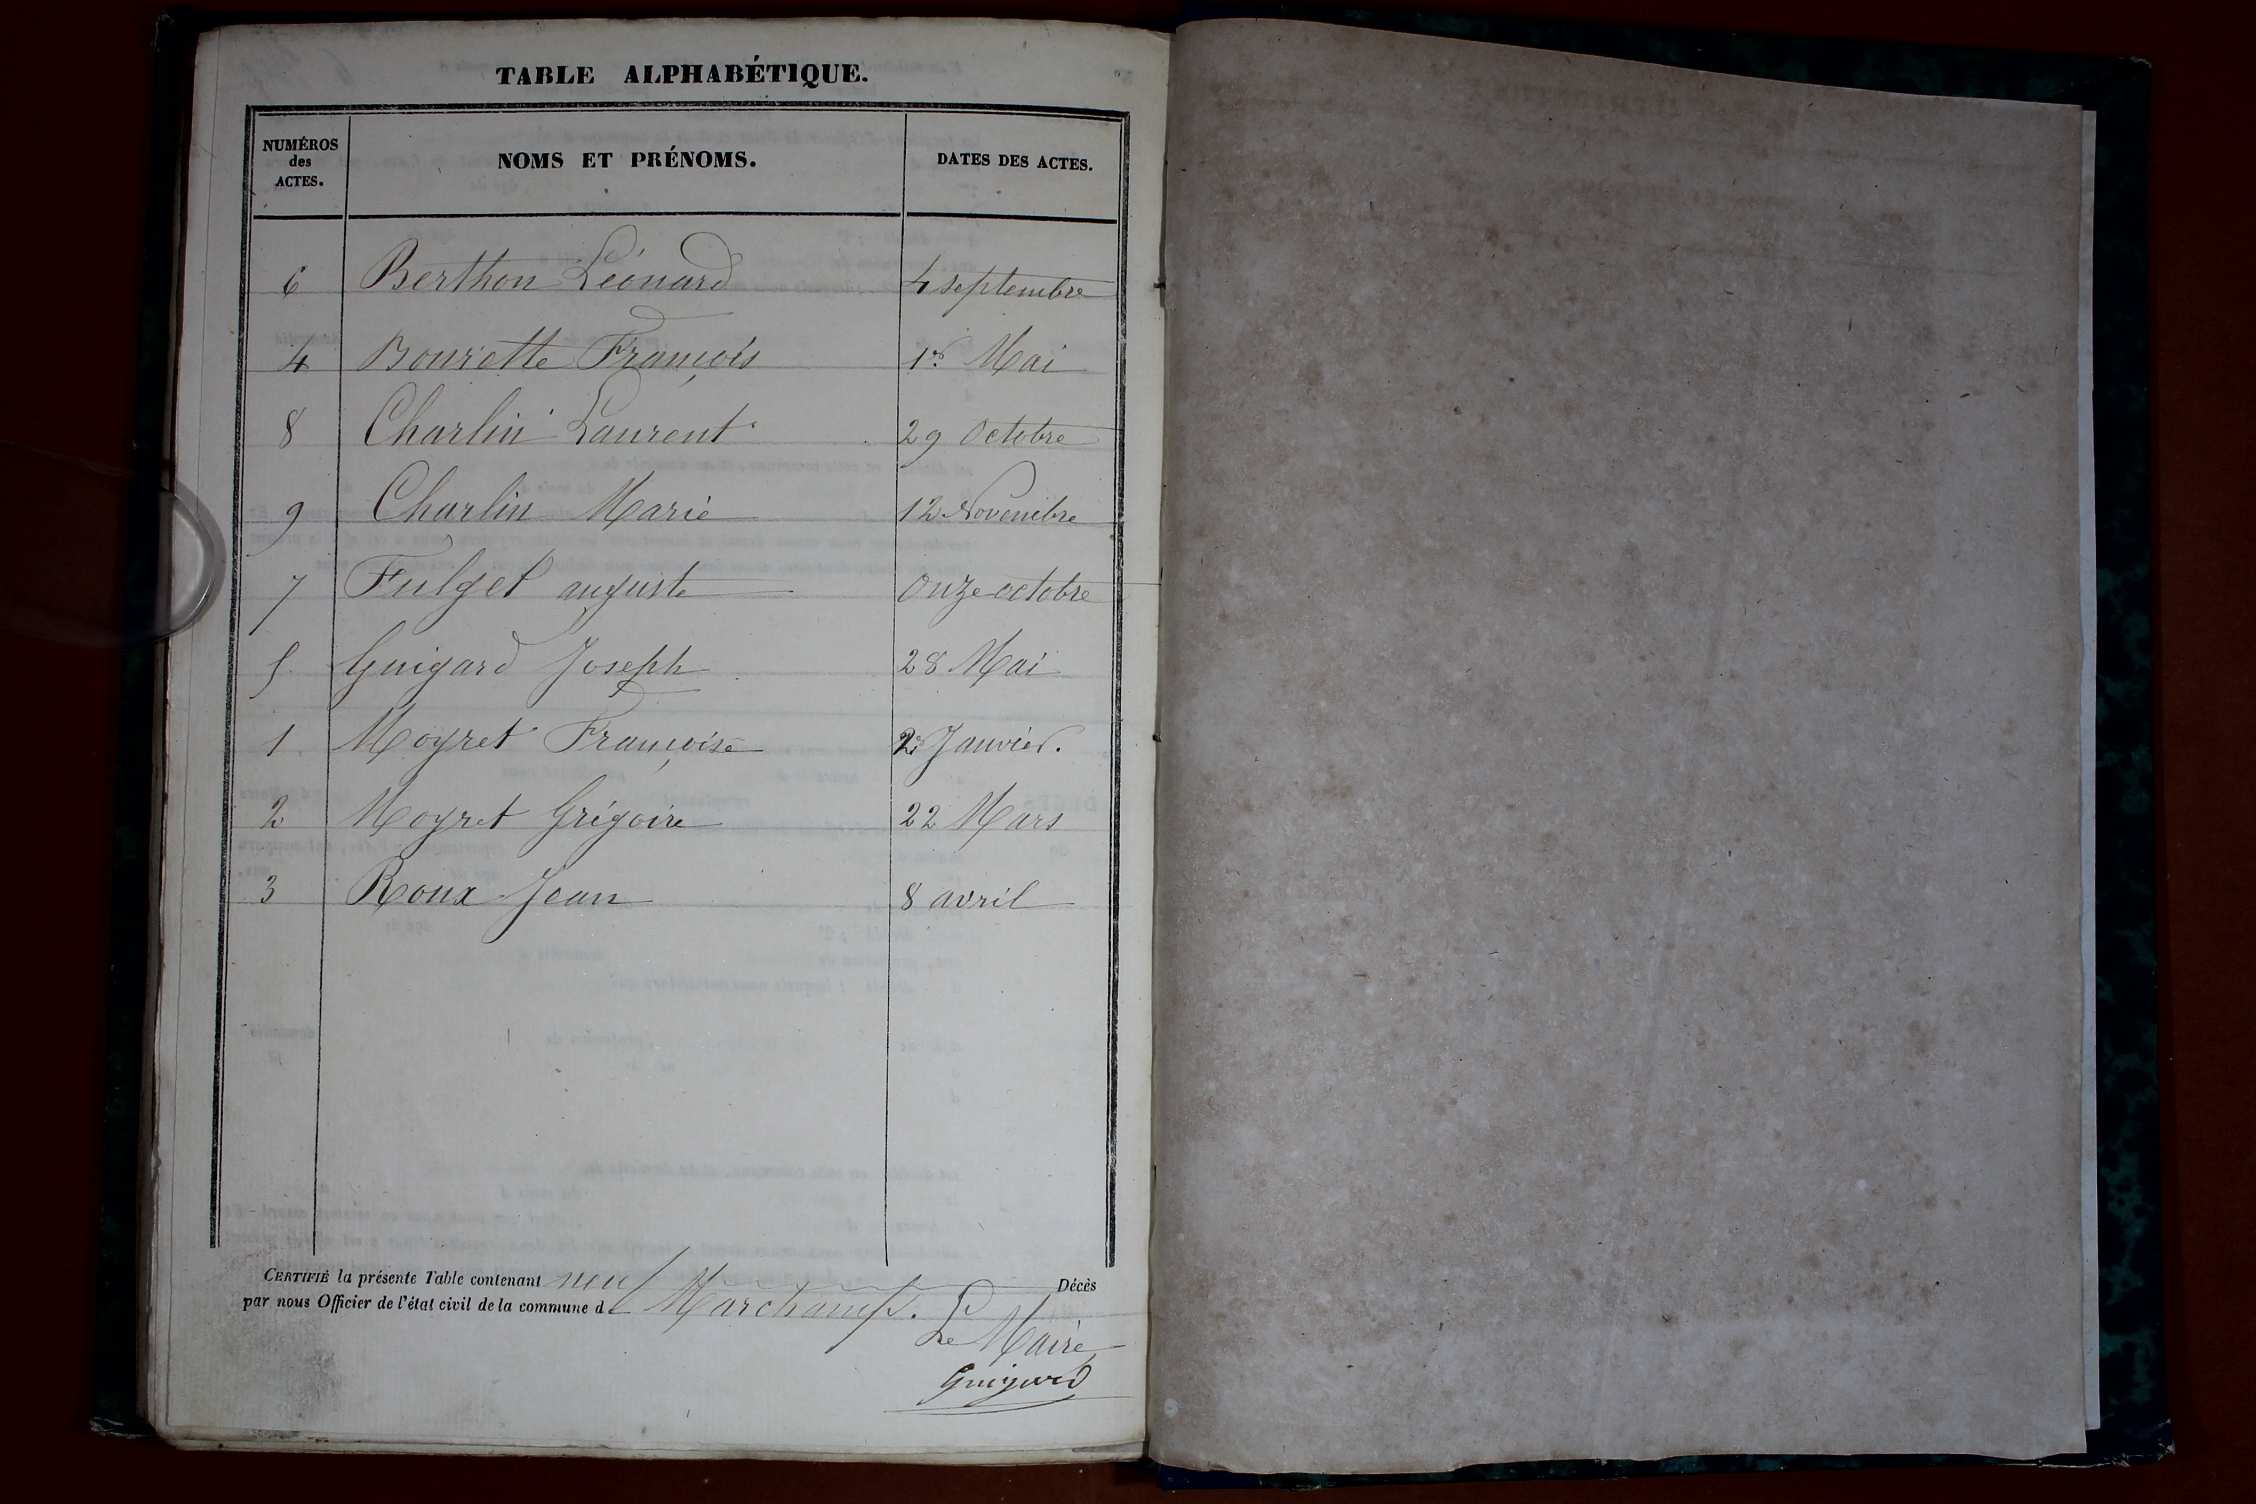 TABLE ALPHABÉTIQUE.
NUMÉROS des ACTES. NOMS ET PRÉNOMS. DATES DES ACTES.
6 Berthon Léonard 4 septembre
4 Bourette François 1er Mai
8 Charlin Laurent 29 Octobre
9 Charlin Marie 12 Novembre
7 Fulget auguste Onze octobre
5 Guigard Joseph 28 Mai
1 Moyret Françoise 2 Janvier.
2 Moyret Grégoire 22 Mars
3 Roux Jean 8 avril
CERTIFIÉ la présente Table contenant neuf Décès
par nous Officier de l'état civil de la commune de Marchamp.
Le Maire
Guigard